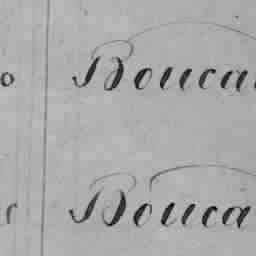 o Bouca
r Bouca